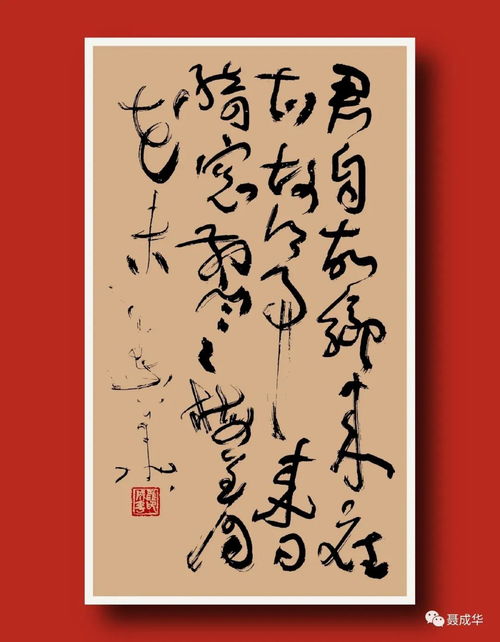 君自故鄉来應
知故鄉事来日
綺窗前寒梅著
花未
聂成华